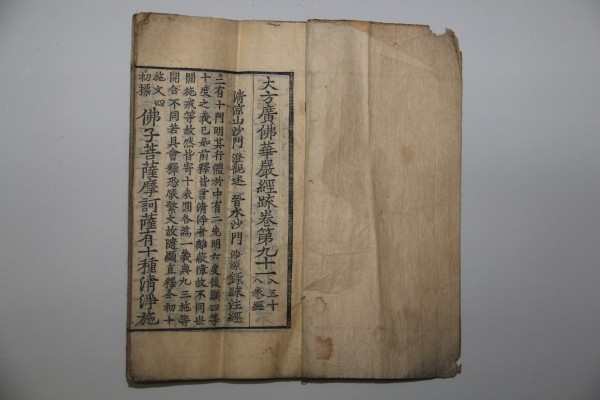 大方廣佛華嚴經疏卷第九十一
入三十
八卷經
清涼山沙門 澄觀述 晉水沙門 淨源錄疏注經
三有十門明其行體於中有二先明六度後顯四等
十度之義已如前釋皆言清淨者離蔽障故不同世
間施戒等故然皆寄十表圓各滿一義與九三施等
開合不同若具會釋恐厭繁文故隨顯直釋今初十
施文四
初摽
佛子菩薩摩訶薩有十種清淨施